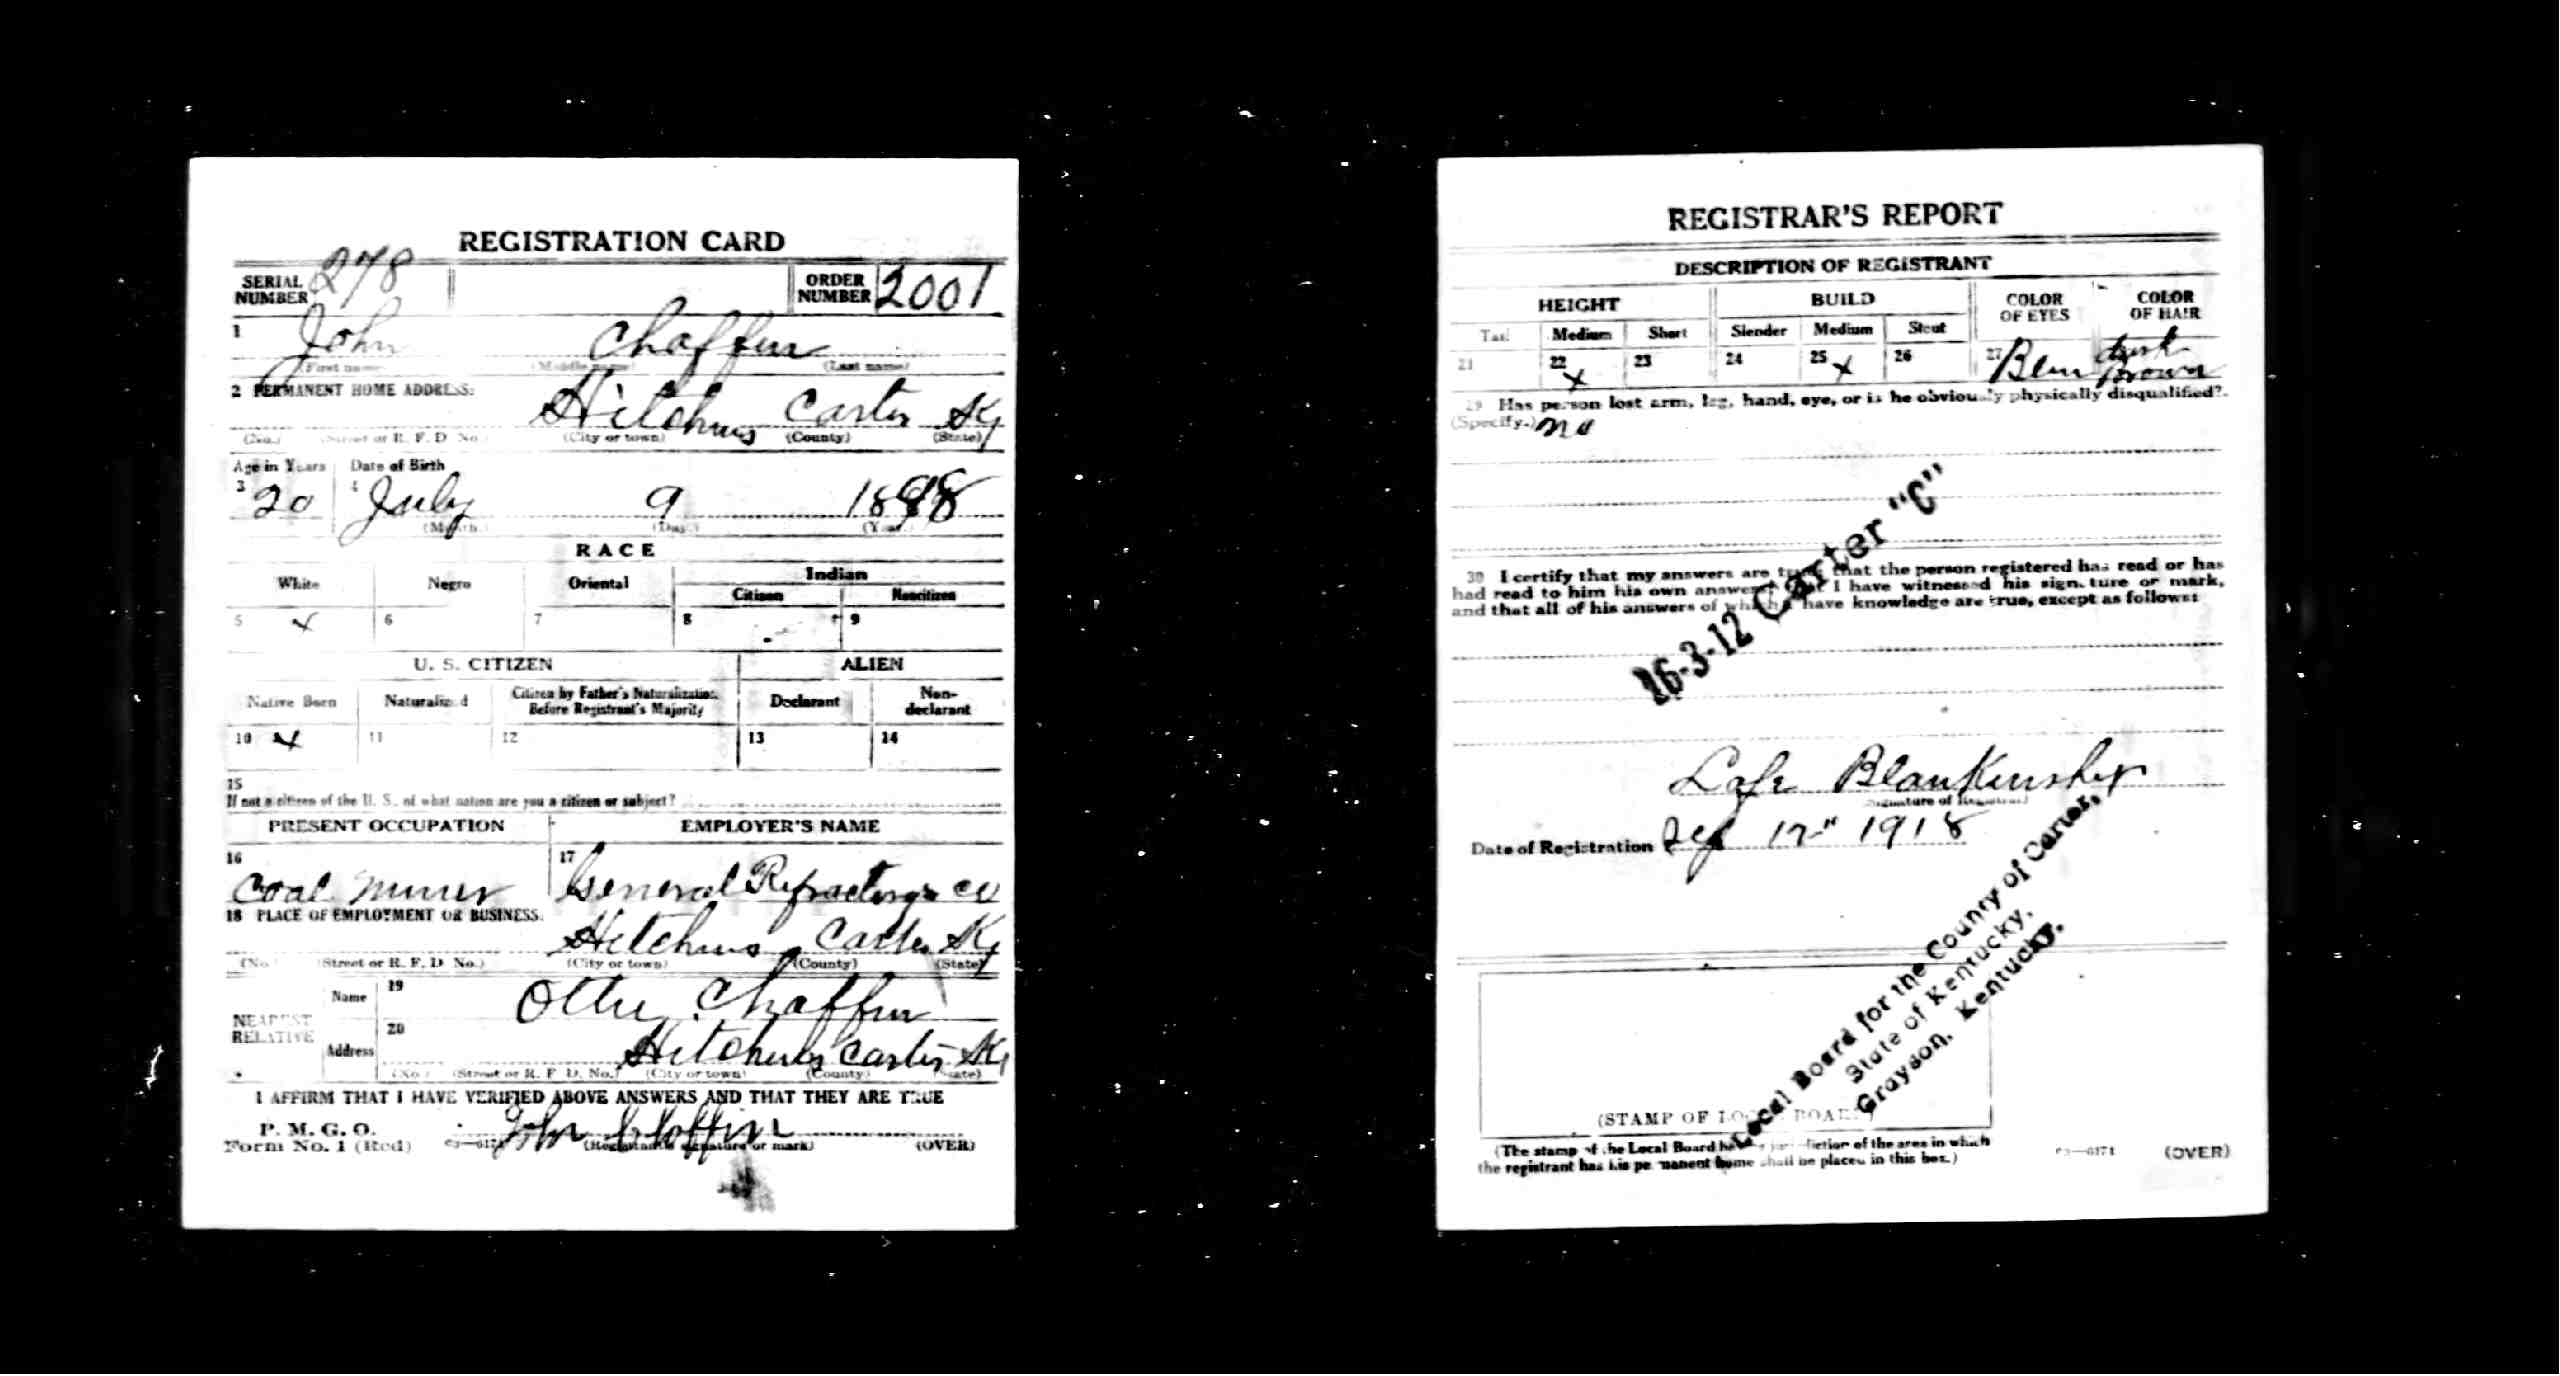 REGISTRATION CARD
SERIAL NUMBER 278
ORDER NUMBER 2001
1 John Chaffin
(First name) (Middle name) (Last name)
2 PERMANENT HOME ADDRESS:
Hitchins Carter Ky
(No.) (Street or R. F. D. No.) (City or town) (County) (State)
Age in Years Date of Birth
3 20 4 July 9 1898
(Month.) (Day.) (Year.)
RACE
White Negro Oriental Indian
Citizen Noncitizen
5 x 6 7 8 9
U. S. CITIZEN ALIEN
Native Born Naturalized Citizen by Father's Naturalization Before Registrant's Majority Declarant Non-declarant
10 x 11 12 13 14
15
If not a citizen of the U. S., of what nation are you a citizen or subject?
PRESENT OCCUPATION EMPLOYER'S NAME
16 17
Coal Miner General Refractorys Co
18 PLACE OF EMPLOYMENT OR BUSINESS:
Hitchins Carter Ky
(No.) (Street or R. F. D. No.) (City or town) (County) (State)
NEAREST RELATIVE
Name 19 Ottie Chaffin
Address 20 Hitchins Carter Ky
(No.) (Street or R. F. D. No.) (City or town) (County) (State)
I AFFIRM THAT I HAVE VERIFIED ABOVE ANSWERS AND THAT THEY ARE TRUE
P. M. G. O.
Form No. 1 (Red) 03—6171 John Chaffin
(Registrant's signature or mark) (OVER)
REGISTRAR'S REPORT
DESCRIPTION OF REGISTRANT
HEIGHT BUILD COLOR OF EYES COLOR OF HAIR
Tall Medium Short Slender Medium Stout
21 22 x 23 24 25 x 26 27 Blue dark Brown
29 Has person lost arm, leg, hand, eye, or is he obviously physically disqualified?
(Specify.) no
30 I certify that my answers are true; that the person registered has read or has
had read to him his own answers; that I have witnessed his signature or mark,
and that all of his answers of which I have knowledge are true, except as follows:
16-3-12 Carter "C"
Lafe Blankinship
(Signature of Registrar)
Date of Registration Sep 12" 1918
Local Board for the County of Carter,
State of Kentucky,
Grayson, Kentucky.
(STAMP OF LOCAL BOARD)
(The stamp of the Local Board having jurisdiction of the area in which
the registrant has his permanent home shall be placed in this box.)
03—6171 (OVER)